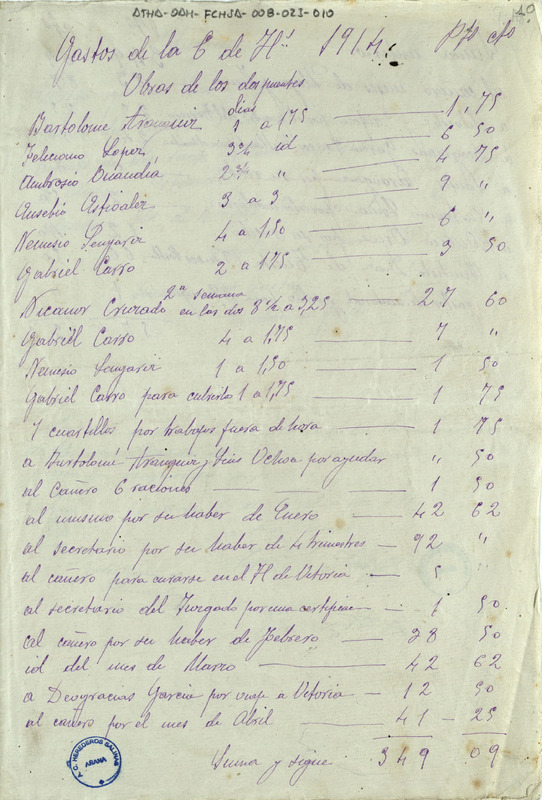 ATHA-DAH-FCHJA-008-023-010
Gastos de la C de Hs 1914 Pts cts
Obras de los dos puentes
días
Bartolomé Aranguiz 1 a 175 1,75
Feliciano Lopez 3 3/4 id 6 50
Ambrosio 2 3/4 " 4 75
Eusebio 3 a 3 9 "
Nemesio 4 a 1,50 6 "
Gabriel Carro 2 a 175 3 50
2ª semana
Nicanor Cruzado en las dos 8 1/2 a 3,25 27 60
Gabriel Carro 4 a 1,75 7 "
Nemesio 1 a 1,50 1 50
Gabriel Carro para cubrirlo 1 a 1,75 1 75
7 cuartillos por trabajos fuera de hora 1 75
a Bartolomé Aranguiz y Luis Ochoa por ayudar " 50
al cañero 6 raciones 1 50
al mismo por su haber de Enero 42 62
al secretario por su haber de 4 trimestres 92 "
al cañero para curarse en el H de Vitoria 5 "
al secretario del Juzgado por una certificac 1 50
al cañero por su haber de Febrero 38 50
id del mes de Marzo 42 62
a Deogracias Garcia por viaje a Vitoria 12 50
al cañero por el mes de Abril 41 25
Suma y sigue 349 09
A. C. HEREDEROS SALINAS
ARANA